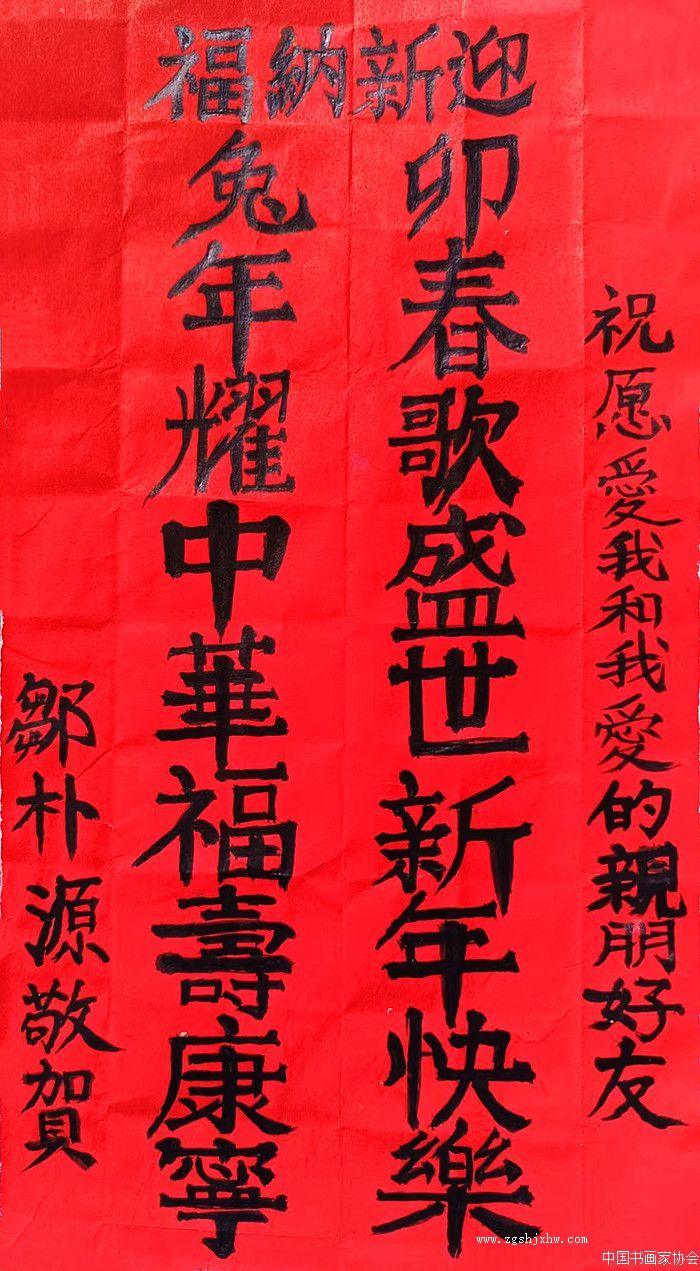 迎新納福
祝愿愛我和我愛的親朋好友
卯春歌盛世新年快樂
兔年耀中華福壽康寧
鄒朴源敬賀
www.zgshjxhw.com
中国书画家协会